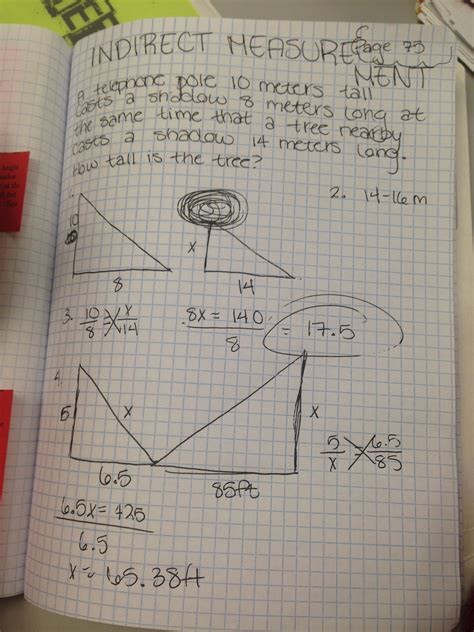 INDIRECT MEASURE
Page 75
MENT
A telephone pole 10 meters tall
casts a shadow 8 meters long at
the same time that a tree nearby
casts a shadow 14 meters long.
How tall is the tree?
2. 14-16m
10
8
x
14
3. 10/8 = x/14
8x = 140
8
= 17.5
4.
5
x
6.5
85ft
x
5/x = 6.5/85
6.5x = 425
6.5
x = 65.38ft